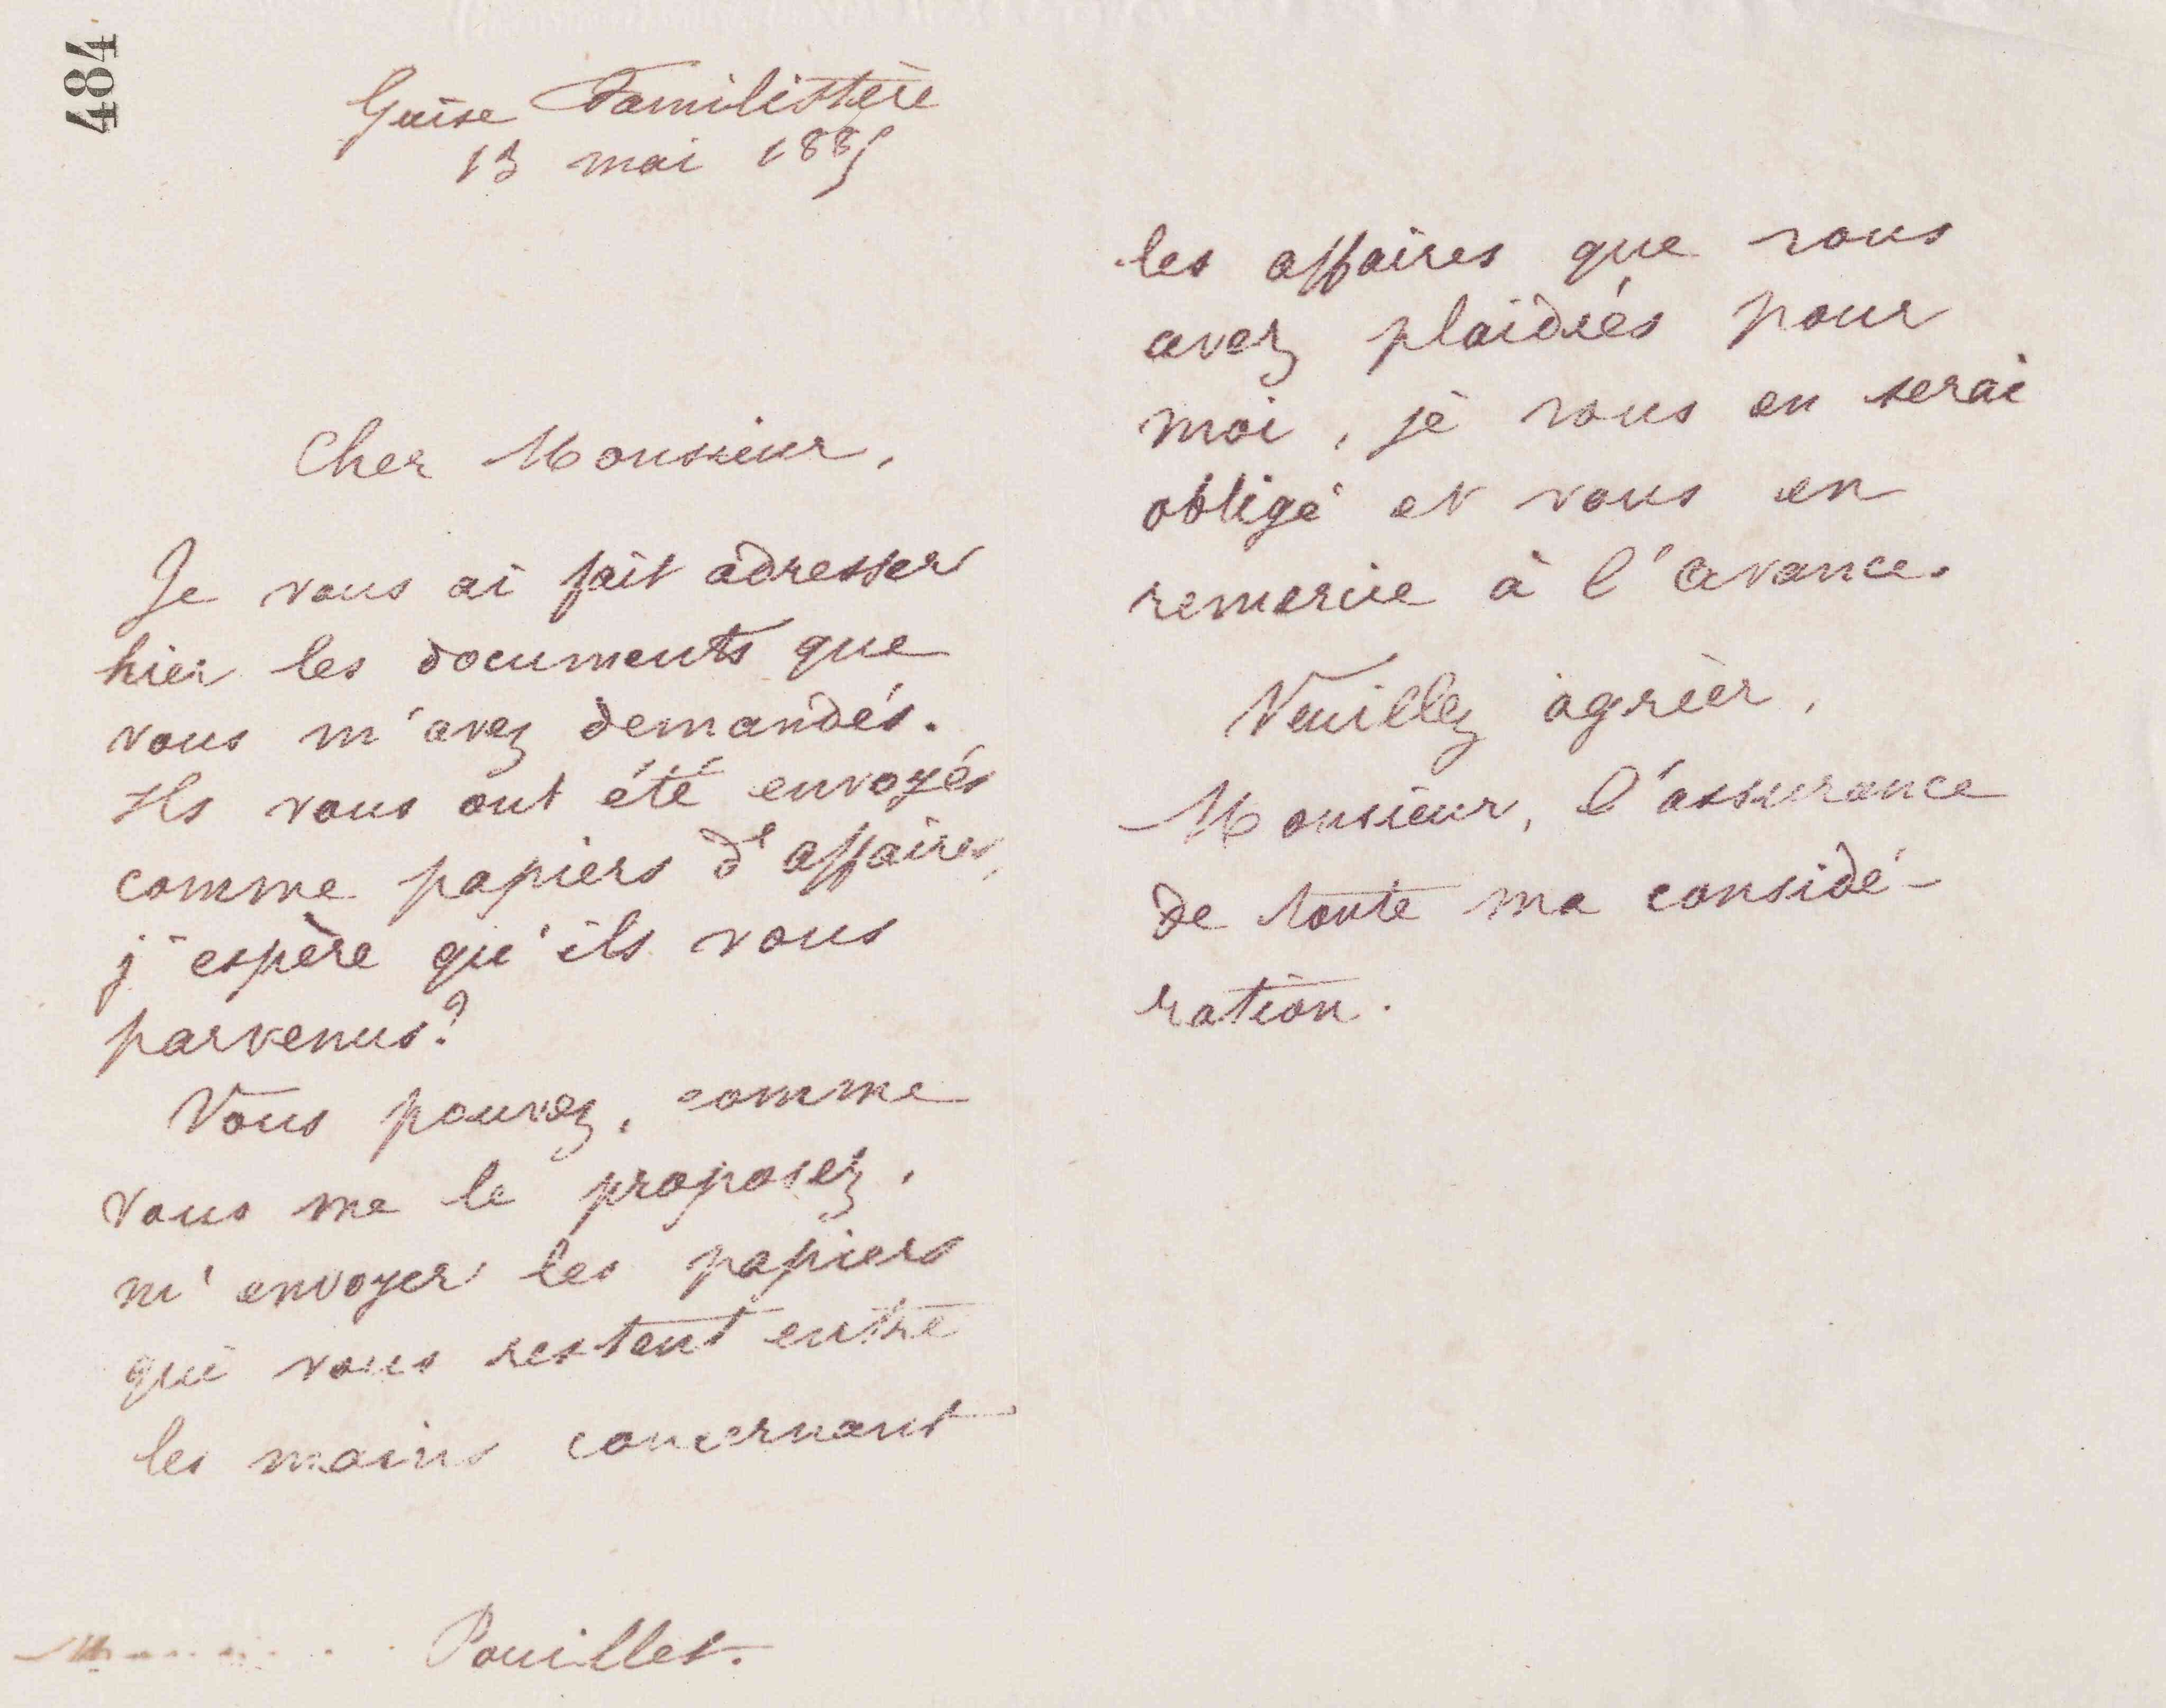 484
Guise Familistère
13 mai 1885
Cher Monsieur,
Je vous ai fait adresser
hier les documents que
vous m'avez demandés.
Ils vous ont été envoyés
comme papiers d'affaires,
j'espère qu'ils vous
parvenus?
Vous pouvez, comme
vous me le proposez,
m'envoyer les papiers
qui vous restent entre
les mains concernant
Pouillet.
les affaires que vous
avez plaidiés pour
moi, je vous en serai
obligé et vous en
remercie à l'avance.
Veuillez agréer,
Monsieur, l'assurance
de toute ma considé-
ration.